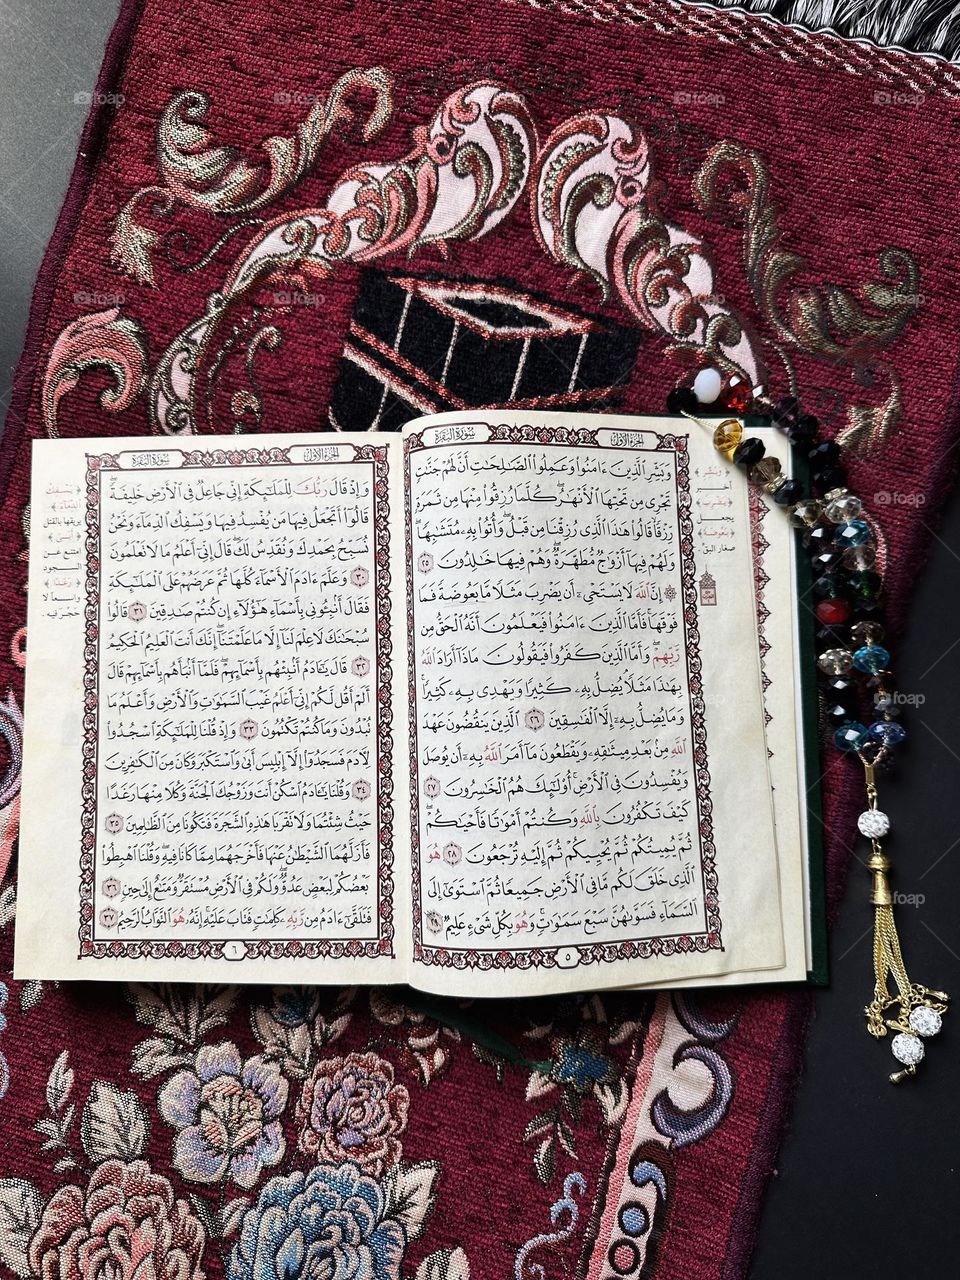 سُورَةُ البَقَرَةِ
الجُزءُ الأَوَّلُ
وَبَشِّرِ الَّذِينَ ءَامَنُوا وَعَمِلُوا الصَّـٰلِحَـٰتِ أَنَّ لَهُمْ جَنَّـٰتٍ
تَجْرِى مِن تَحْتِهَا الْأَنْهَـٰرُ كُلَّمَا رُزِقُوا مِنْهَا مِن ثَمَرَةٍ
رِّزْقًا قَالُوا هَـٰذَا الَّذِى رُزِقْنَا مِن قَبْلُ وَأُتُوا بِهِ مُتَشَـٰبِهًا
وَلَهُمْ فِيهَا أَزْوَٰجٌ مُّطَهَّرَةٌ وَهُمْ فِيهَا خَـٰلِدُونَ ٢٥
إِنَّ اللَّهَ لَا يَسْتَحْىِ أَن يَضْرِبَ مَثَلًا مَّا بَعُوضَةً فَمَا
فَوْقَهَا فَأَمَّا الَّذِينَ ءَامَنُوا فَيَعْلَمُونَ أَنَّهُ الْحَقُّ مِن
رَّبِّهِمْ وَأَمَّا الَّذِينَ كَفَرُوا فَيَقُولُونَ مَاذَا أَرَادَ اللَّهُ
بِهَـٰذَا مَثَلًا يُضِلُّ بِهِ كَثِيرًا وَيَهْدِى بِهِ كَثِيرًا
وَمَا يُضِلُّ بِهِ إِلَّا الْفَـٰسِقِينَ ٢٦ الَّذِينَ يَنقُضُونَ عَهْدَ
اللَّهِ مِن بَعْدِ مِيثَـٰقِهِ وَيَقْطَعُونَ مَا أَمَرَ اللَّهُ بِهِ أَن يُوصَلَ
وَيُفْسِدُونَ فِى الْأَرْضِ أُولَـٰئِكَ هُمُ الْخَـٰسِرُونَ ٢٧
كَيْفَ تَكْفُرُونَ بِاللَّهِ وَكُنتُمْ أَمْوَٰتًا فَأَحْيَـٰكُمْ
ثُمَّ يُمِيتُكُمْ ثُمَّ يُحْيِيكُمْ ثُمَّ إِلَيْهِ تُرْجَعُونَ ٢٨ هُوَ
الَّذِى خَلَقَ لَكُم مَّا فِى الْأَرْضِ جَمِيعًا ثُمَّ اسْتَوَىٰ إِلَى
السَّمَاءِ فَسَوَّىٰهُنَّ سَبْعَ سَمَـٰوَٰتٍ وَهُوَ بِكُلِّ شَىْءٍ عَلِيمٌ ٢٩
٥
وَبَشِّرِ
يَضْرِبَ
يجعل
بَعُوضَةً
صغار البق
سُورَةُ البَقَرَةِ
الجُزءُ الأَوَّلُ
وَإِذْ قَالَ رَبُّكَ لِلْمَلَـٰئِكَةِ إِنِّى جَاعِلٌ فِى الْأَرْضِ خَلِيفَةً
قَالُوا أَتَجْعَلُ فِيهَا مَن يُفْسِدُ فِيهَا وَيَسْفِكُ الدِّمَاءَ وَنَحْنُ
نُسَبِّحُ بِحَمْدِكَ وَنُقَدِّسُ لَكَ قَالَ إِنِّى أَعْلَمُ مَا لَا تَعْلَمُونَ
٣٠ وَعَلَّمَ ءَادَمَ الْأَسْمَاءَ كُلَّهَا ثُمَّ عَرَضَهُمْ عَلَى الْمَلَـٰئِكَةِ
فَقَالَ أَنبِئُونِى بِأَسْمَاءِ هَـٰؤُلَاءِ إِن كُنتُمْ صَـٰدِقِينَ ٣١ قَالُوا
سُبْحَـٰنَكَ لَا عِلْمَ لَنَا إِلَّا مَا عَلَّمْتَنَا إِنَّكَ أَنتَ الْعَلِيمُ الْحَكِيمُ
٣٢ قَالَ يَـٰـَٔادَمُ أَنبِئْهُم بِأَسْمَائِهِمْ فَلَمَّا أَنبَأَهُم بِأَسْمَائِهِمْ قَالَ
أَلَمْ أَقُل لَّكُمْ إِنِّى أَعْلَمُ غَيْبَ السَّمَـٰوَٰتِ وَالْأَرْضِ وَأَعْلَمُ مَا
تُبْدُونَ وَمَا كُنتُمْ تَكْتُمُونَ ٣٣ وَإِذْ قُلْنَا لِلْمَلَـٰئِكَةِ اسْجُدُوا
لِـَٔادَمَ فَسَجَدُوا إِلَّا إِبْلِيسَ أَبَىٰ وَاسْتَكْبَرَ وَكَانَ مِنَ الْكَـٰفِرِينَ
٣٤ وَقُلْنَا يَـٰـَٔادَمُ اسْكُنْ أَنتَ وَزَوْجُكَ الْجَنَّةَ وَكُلَا مِنْهَا رَغَدًا
حَيْثُ شِئْتُمَا وَلَا تَقْرَبَا هَـٰذِهِ الشَّجَرَةَ فَتَكُونَا مِنَ الظَّـٰلِمِينَ ٣٥
فَأَزَلَّهُمَا الشَّيْطَـٰنُ عَنْهَا فَأَخْرَجَهُمَا مِمَّا كَانَا فِيهِ وَقُلْنَا اهْبِطُوا
بَعْضُكُمْ لِبَعْضٍ عَدُوٌّ وَلَكُمْ فِى الْأَرْضِ مُسْتَقَرٌّ وَمَتَـٰعٌ إِلَىٰ حِينٍ ٣٦
فَتَلَقَّىٰ ءَادَمُ مِن رَّبِّهِ كَلِمَـٰتٍ فَتَابَ عَلَيْهِ إِنَّهُ هُوَ التَّوَّابُ الرَّحِيمُ ٣٧
٦
يَسْفِكُ
الدِّمَاءَ
يريقها بالقتل
أَبَىٰ
امتنع عن
السجود
رَغَدًا
واسعا لا
حجر فيه
foap